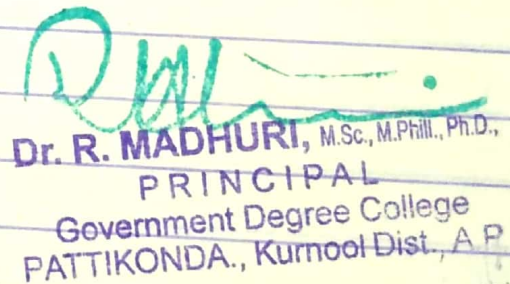 Dr. R. MADHURI, M.Sc., M.Phill., Ph.D.,
PRINCIPAL
Government Degree College
PATTIKONDA., Kurnool Dist., A P